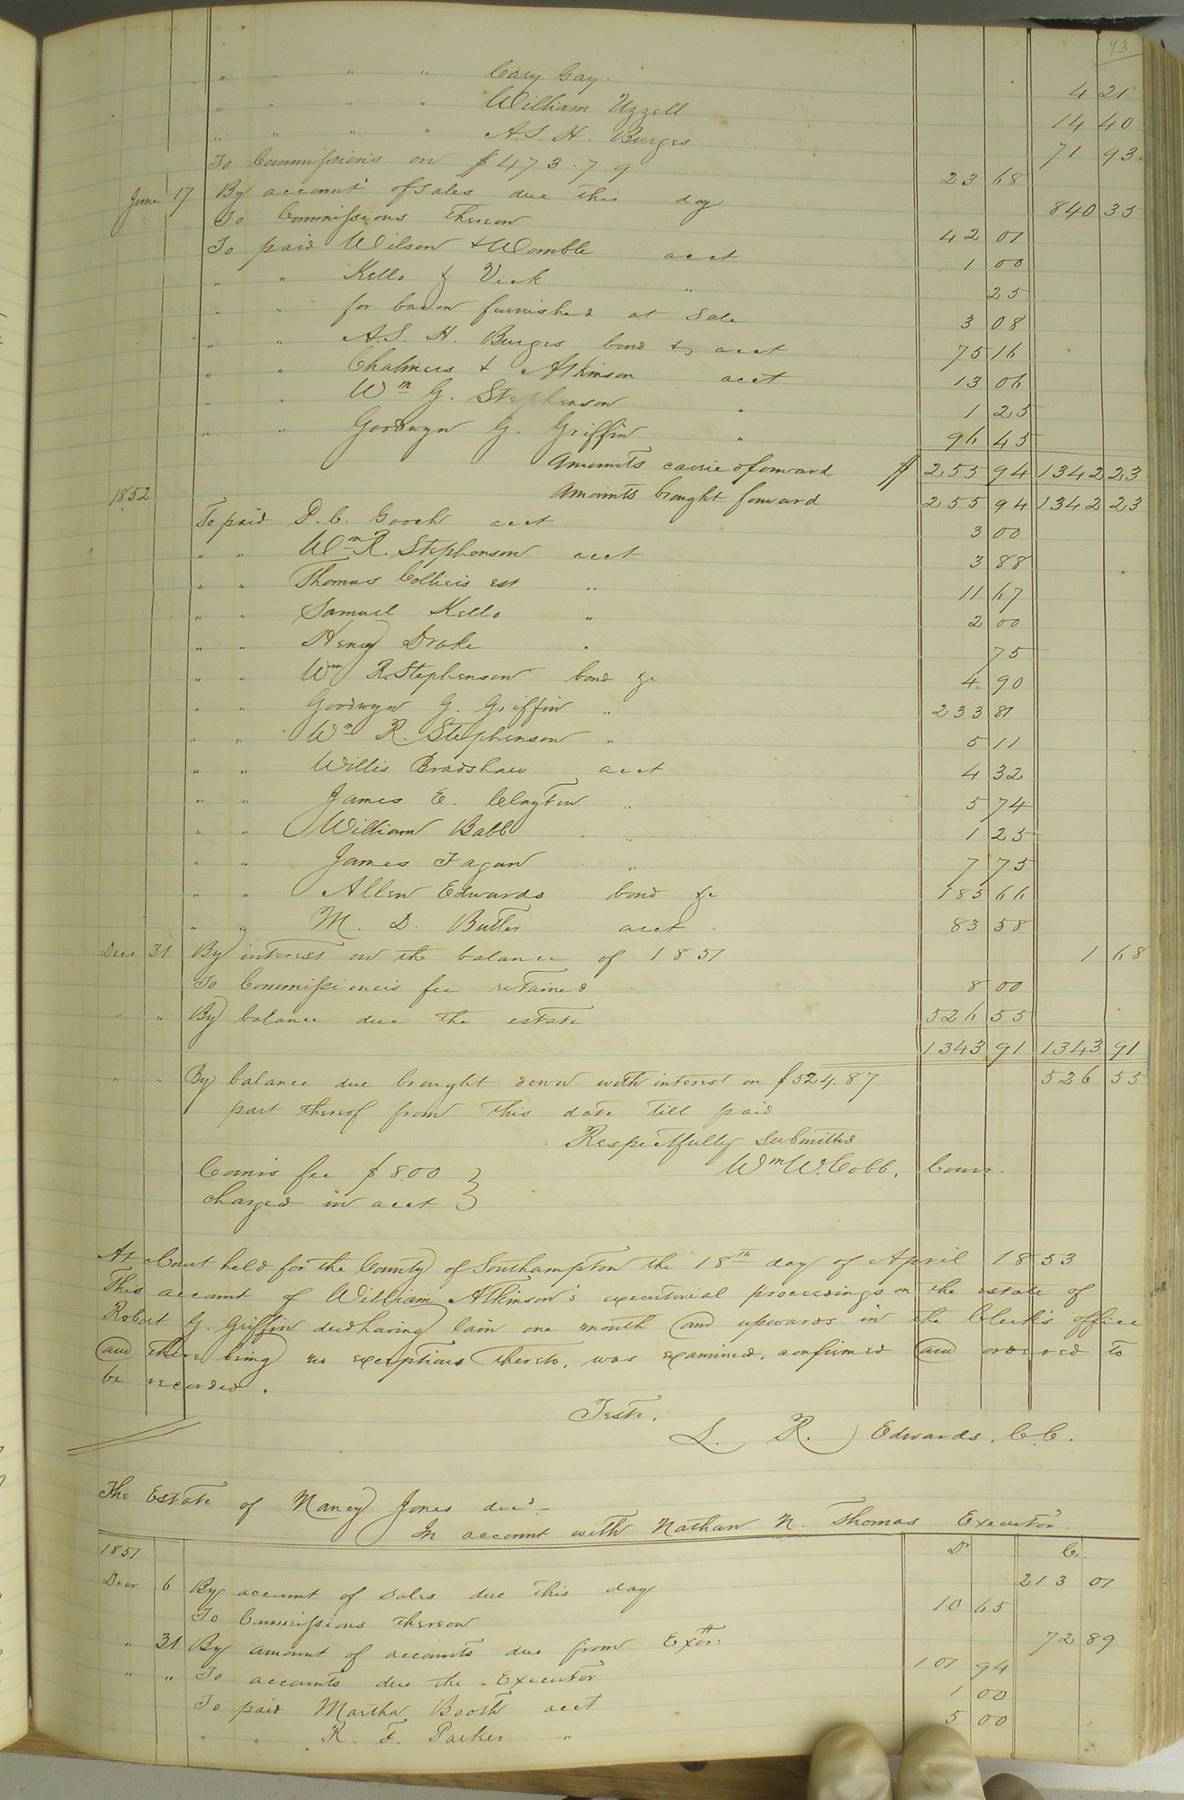 93
" " " " Cary Gay. 4 21
" " " " William Uzzell 14 40
" " " " A. S. H. Burges 71 93
To Commissions on $473.79 23 68
June 17 By account of sales due this day 840 35
To Commissions thereon 42 01
To paid Wilson & Womble acct 1 00
" " Kello & Vick " 25
" " for bacon furnished at sale 3 08
" " A. S. H. Burges bond & acct 75 16
" " Chalmers & Atkinson acct 13 06
" " Wm G. Stephenson " 1 25
" " Goodwyn G. Griffin " 96 45
Amounts carried forward $ 255 94 1342 23
1852 Amounts brought forward 255 94 1342 23
To paid D. C. Gooch acct 3 00
" " Wm R. Stephenson acct 3 88
" " Thomas est " 11 67
" " Samuel Kello " 2 00
" " Henry Drake " 75
" " Wm R. Stephenson bond &c 4 90
" " Goodwyn G. Griffin " 233 81
" " Wm R. Stephenson " 5 11
" " Willis Bradshaw acct 4 32
" " James E. Clayton " 5 74
" " William Babb " 1 25
" " James Fagan " 7 75
" " Allen Edwards bond &c 185 66
" " M. D. Butler acct 83 58
Decr 31 By interest on the balance of 1851 1 68
To Commissioners fee retained 8 00
" " By balance due the estate 526 55
1343 91 1343 91
" " By balance due brought down with interest on $524.87 526 55
part thereof from this date till paid
Respectfully submitted
Wm W. Cobb, Comr.
Comrs fee $8.00 }
charged in acct }
At a Court held for the County of Southampton the 18th day of April 1853
This account of William Atkinson's executorial proceedings on the estate of
Robert G. Griffin decd having lain one month and upwards in the Clerk's office
and there being no exceptions thereto, was examined, confirmed and ordered to
be recorded.
Teste,
L. R. Edwards, C. C.
The Estate of Nancy Jones decd
In account with Nathan N. Thomas Executor
1851 Dr Cr.
Decr 6 By account of sales due this day 213 01
To Commissions thereon 10 65
" 31 By amount of accounts due from Extr: 72 89
" " To accounts due the Executor 101 94
To paid Martha Booth acct 1 00
" " R. F. Parker " 5 00